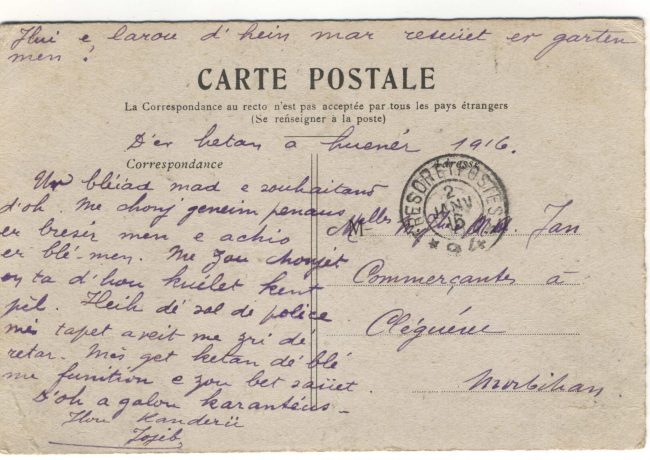 Hui e larou d'hein mar reseüet er garten
men?
CARTE POSTALE
La Correspondance au recto n'est pas acceptée par tous les pays étrangers
(Se renseigner à la poste)
D'er hetan a huenér 1916.
Correspondance
Ur bléad mad e souhaitand
d'oh. Me chonj geneim penaus
er bresér men e achio
er blé-men. Me zou chonjet
en ta d'hou kuélet kent
pèl. Heih dé sol de police
mès tapet aveit me zri dé
retar. Mès get ketan dé blé
me funition e zou bet saüet.
D'oh a galon karantéus
Hou Kanderü
Joseb
TRESOR ET POSTES
2
JANV
16
* 9 *
Melles M. Jan
Commerçantes à
Cléguérec
Morbihan